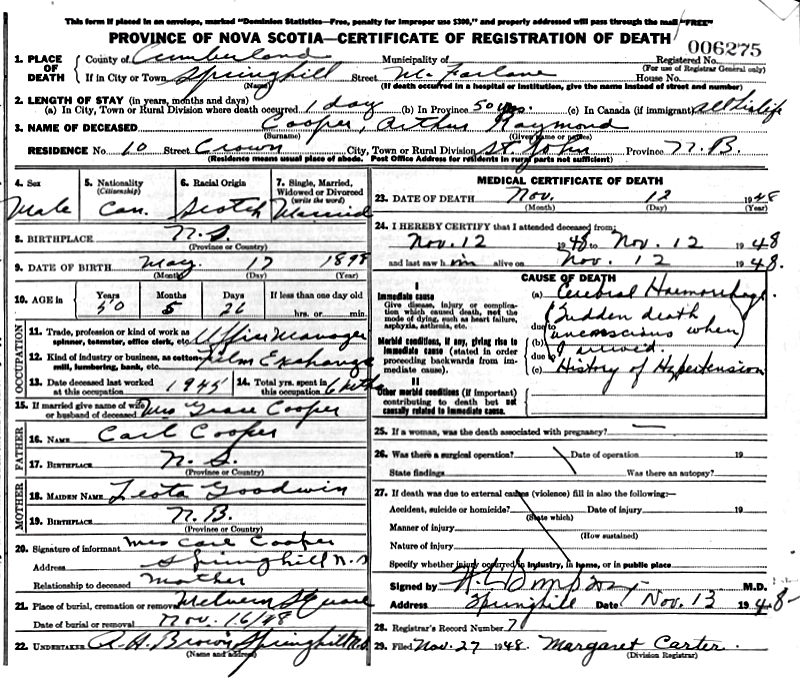 This form if placed in an envelope, marked "Dominion Statistics—Free, penalty for improper use $300," and properly addressed will pass through the mail "FREE"
PROVINCE OF NOVA SCOTIA—CERTIFICATE OF REGISTRATION OF DEATH
006275
1. PLACE OF DEATH
County of Cumberland Municipality of Registered No.
(For use of Registrar General only)
If in City or Town Springhill Street McFarlane House No.
(Name) (If death occurred in hospital or institution, give the name instead of street and number)
2. LENGTH OF STAY (in years, months and days)
(a) In City, Town or Rural Division where death occurred 1 day (b) In Province 50 yrs. (c) In Canada (if immigrant) all his life
3. NAME OF DECEASED Cooper, Arthur Raymond
(Surname) (Given name or names)
RESIDENCE No. 10 Street Crown City, Town or Rural Division St John Province N.B.
(Residence means usual place of abode. Post Office Address for residents in rural parts not sufficient)
4. Sex 5. Nationality (Citizenship) 6. Racial Origin 7. Single, Married, Widowed or Divorced (write the word)
Male Can. Scotch Married
8. BIRTHPLACE N.S.
(Province or Country)
9. DATE OF BIRTH May 17 1898
(Month) (Day) (Year)
10. AGE in Years Months Days If less than one day old
50 5 26 hrs. or min.
OCCUPATION
11. Trade, profession or kind of work as spinner, teamster, office clerk, etc. Office Manager
12. Kind of industry or business, as cotton mill, lumbering, bank, etc. Film Exchange
13. Date deceased last worked at this occupation 1945 14. Total yrs. spent in this occupation
15. If married give name of wife or husband of deceased Mrs Grace Cooper
FATHER
16. NAME Carl Cooper
17. BIRTHPLACE N.S.
(Province or Country)
MOTHER
18. MAIDEN NAME Leota Goodwin
19. BIRTHPLACE N.B.
(Province or Country)
20. Signature of informant Mrs Carl Cooper
Address Springhill N.S
Relationship to deceased Mother
21. Place of burial, cremation or removal Melvern Square
Date of burial or removal Nov. 16/48
22. UNDERTAKER A.H. Brown Springhill N.S.
(Name and address)
MEDICAL CERTIFICATE OF DEATH
23. DATE OF DEATH Nov. 12 1948
(Month) (Day) (Year)
24. I HEREBY CERTIFY that I attended deceased from:
Nov. 12 1948 to Nov. 12 1948
and last saw him alive on Nov. 12 1948.
CAUSE OF DEATH
I
Immediate cause
Give disease, injury or complication which caused death, not the mode of dying, such as heart failure, asphyxia, asthenia, etc.
(a) Cerebral Haemorrhage
(Sudden death
due to
unconscious when
Morbid conditions, if any, giving rise to immediate cause (stated in order proceeding backwards from immediate cause).
(b) I arrived.)
due to
(c) History of Hypertension
II
Other morbid conditions (if important) contributing to death but not causally related to immediate cause.
25. If a woman, was the death associated with pregnancy? —
26. Was there a surgical operation? Date of operation 19
State findings Was there an autopsy?
27. If death was due to external causes (violence) fill in also the following:—
Accident, suicide or homicide? Date of injury 19
(State which)
Manner of injury
(How sustained)
Nature of injury
Specify whether injury occurred in industry, in home, or in public place
Signed by M.D.
Address Springhill Date Nov. 13 1948
28. Registrar's Record Number 7
29. Filed Nov. 27 1948. Margaret Carter.
(Division Registrar)